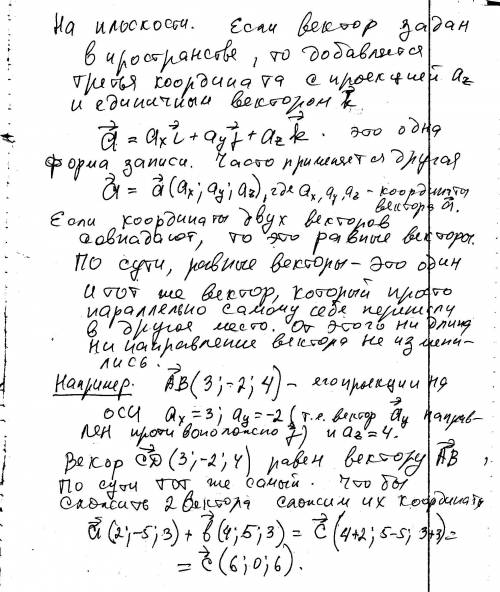 На плоскости. Если вектор задан
в пространстве, то добавляется
третья координата с проекцией az
и единичным вектором k⃗
a⃗ = axi⃗ + ayj⃗ + azk⃗. Это одна
форма записи. Часто применяется другая
a⃗ = a⃗(ax; ay; az), где ax, ay, az – координаты
вектора a⃗.
Если координаты двух векторов
совпадают, то это равные векторы.
По сути, равные векторы – это один
и тот же вектор, который просто
параллельно самому себе перенесли
в другое место. От этого ни длина
ни направление вектора не измени-
лись.
Например. AB⃗(3; -2; 4) – его проекции на
оси ax = 3; ay = -2 (т.е. вектор a⃗y направ-
лен противоположно j⃗) и az = 4.
Векор CD⃗(3; -2; 4) равен вектору AB⃗,
по сути тот же самый. Что бы
сложить 2 вектора сложим их координаты
a⃗(2; -5; 3) + b⃗(4; 5; 3) = c⃗(4+2; 5-5; 3+3) =
= c⃗(6; 0; 6).